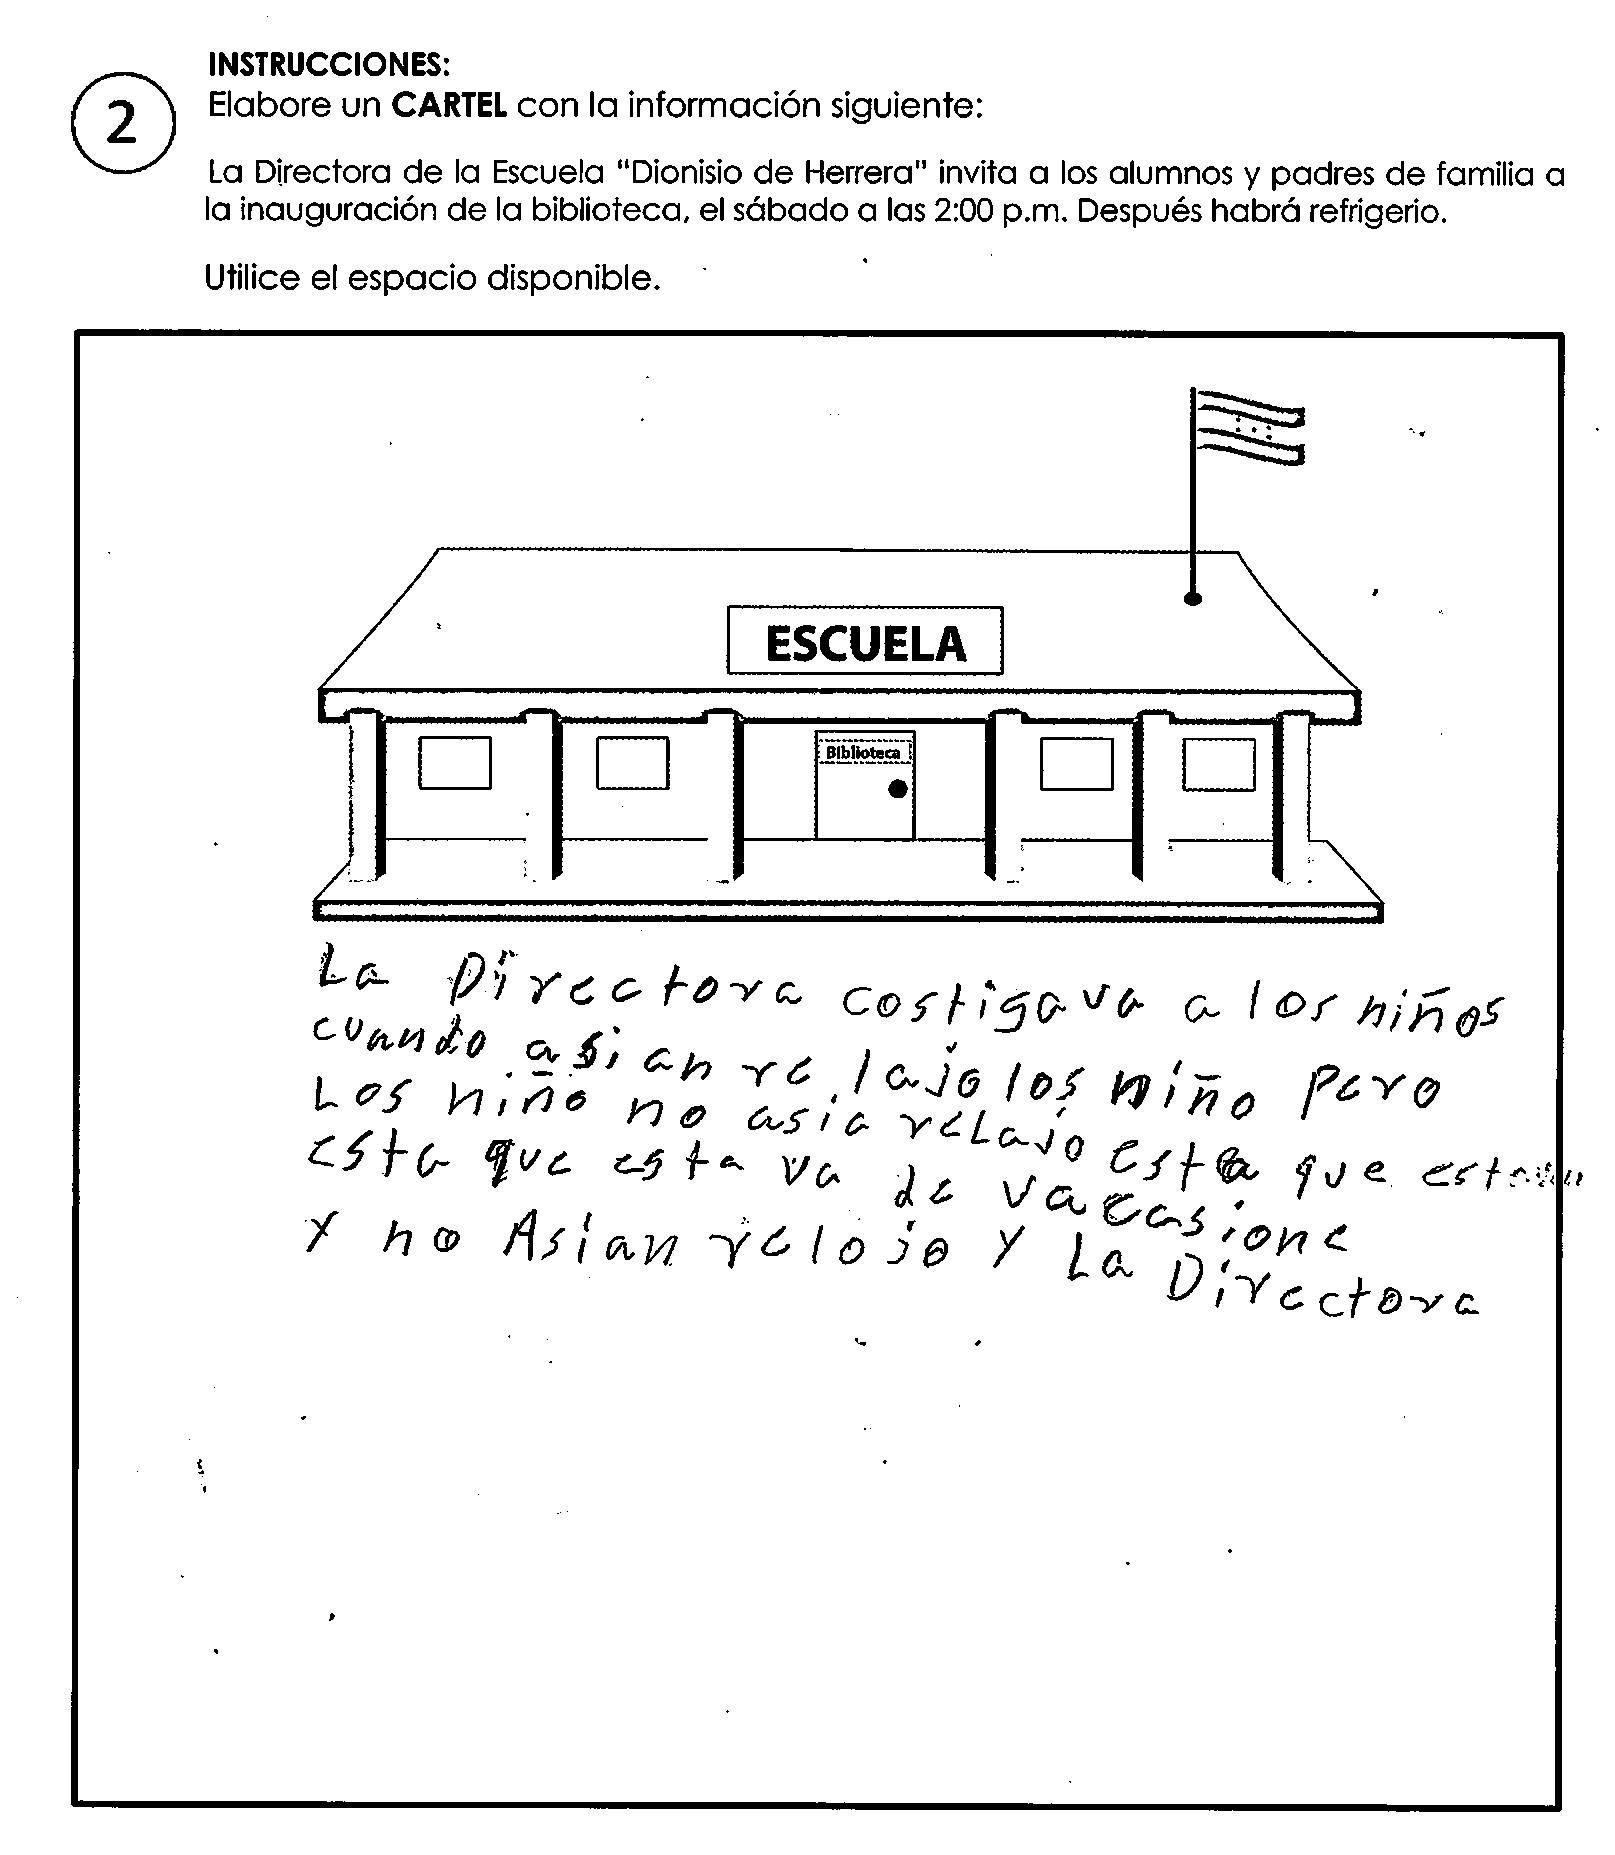 INSTRUCCIONES:
2
Elabore un CARTEL con la información siguiente:
La Directora de la Escuela "Dionisio de Herrera" invita a los alumnos y padres de familia a
la inauguración de la biblioteca, el sábado a las 2:00 p.m. Después habrá refrigerio.
Utilice el espacio disponible.
ESCUELA
Biblioteca
La Directora costigava a los niños
cuando asian relajo los niño pero
Los niño no asia relajo
esta que estava de vacasione esta que
y no Asian relojo y La Directora